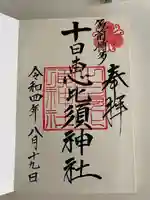 奉拝
十日恵比須神社
令和四年八月十九日